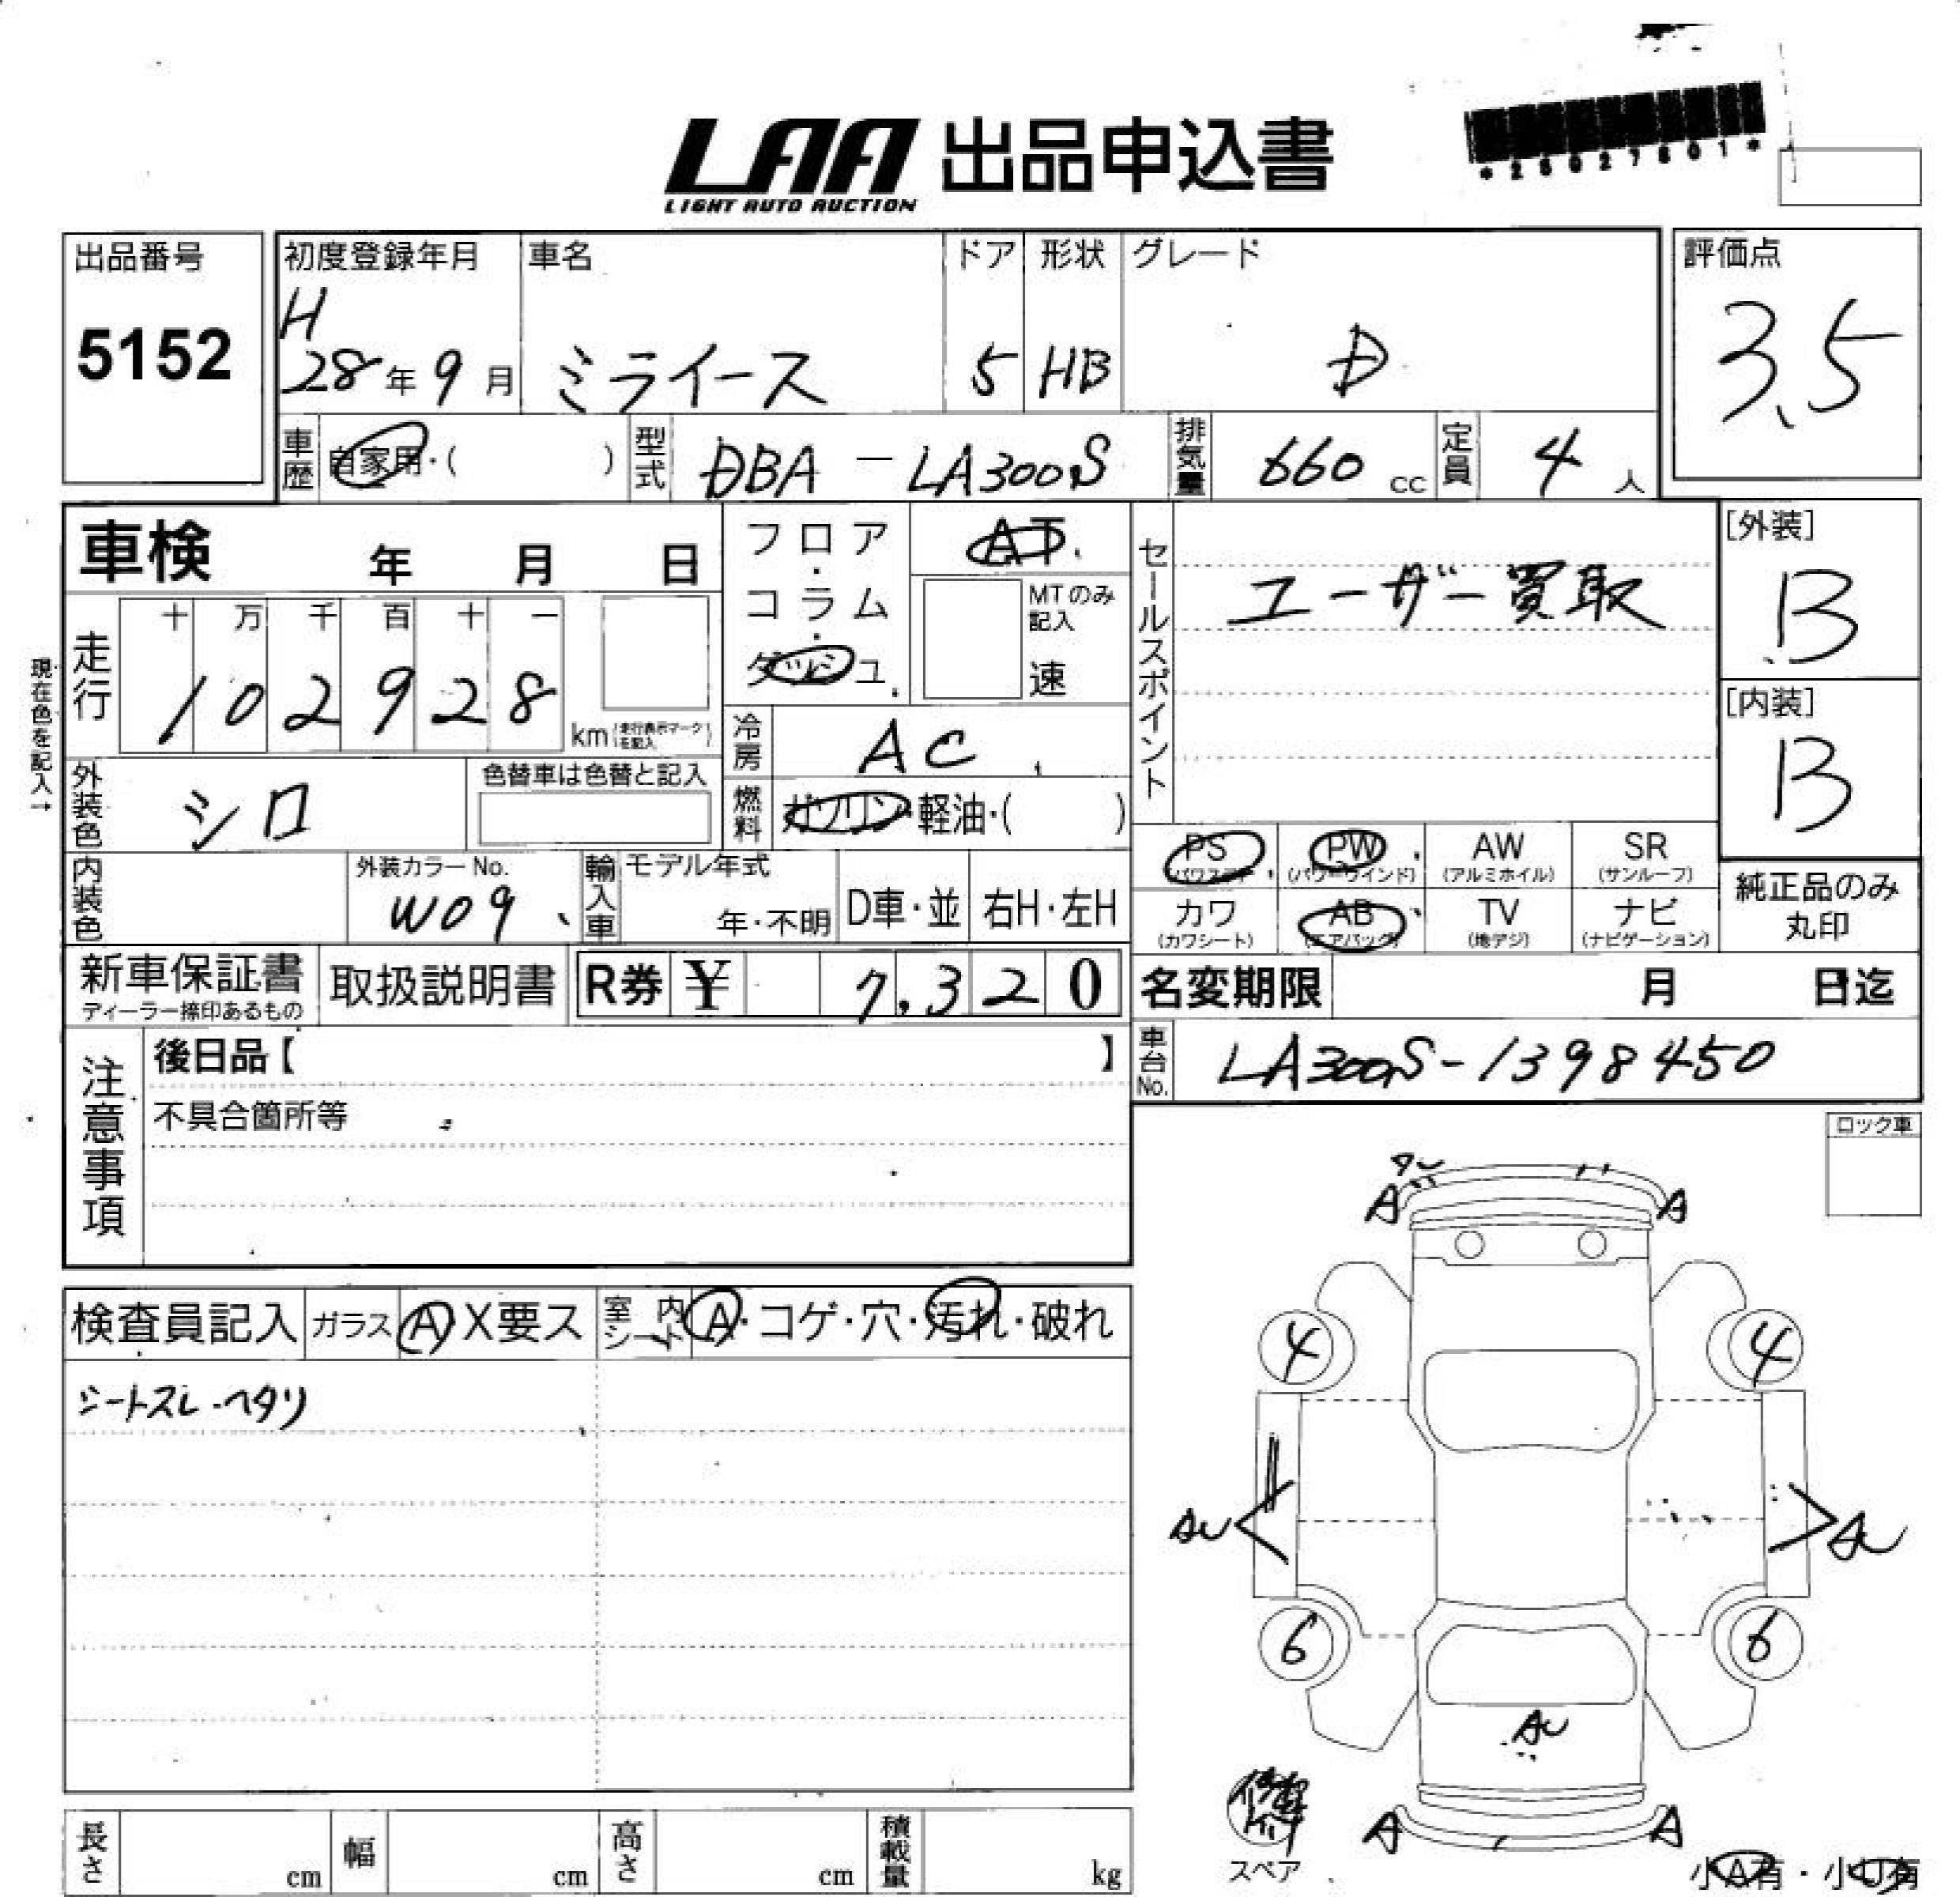 *25027801*
LAA 出品申込書
LIGHT AUTO AUCTION
出品番号 初度登録年月 車名 ドア 形状 グレード 評価点
5152 H 28年9月 ミライース 5 HB D 3.5
車歴 自家用・( ) 型式 DBA-LA300S 排気量 660 cc 定員 4 人
車検 年 月 日 フロア・コラム・ダッシュ AT
MTのみ記入 速
セールスポイント ユーザー買取
[外装] B
[内装] B
現在色を記入→
走行 十 万 千 百 十 一
1 0 2 9 2 8 km (走行表示マークを記入)
冷房 AC
外装色 シロ 色替車は色替と記入
燃料 ガソリン・軽油・( )
PS (パワステ) PW (パワーウインド) AW (アルミホイル) SR (サンルーフ)
カワ (カワシート) AB (エアバッグ) TV (地デジ) ナビ (ナビゲーション)
純正品のみ丸印
内装色 外装カラーNo. W09 輸入車 モデル年式 年・不明 D車・並 右H・左H
新車保証書 ディーラー捺印あるもの 取扱説明書 R券 ¥ 7,320
名変期限 月 日迄
車台No. LA300S-1398450
注意事項 後日品【 】
不具合箇所等
ロック車
検査員記入 ガラス A X要ス 室内シート A・コゲ・穴・汚れ・破れ
シートスレ・ヘタリ
AU
A A
4 4
AU AU
6 6
AU
A A
スペア
小A有・小U有
長さ cm 幅 cm 高さ cm 積載量 kg